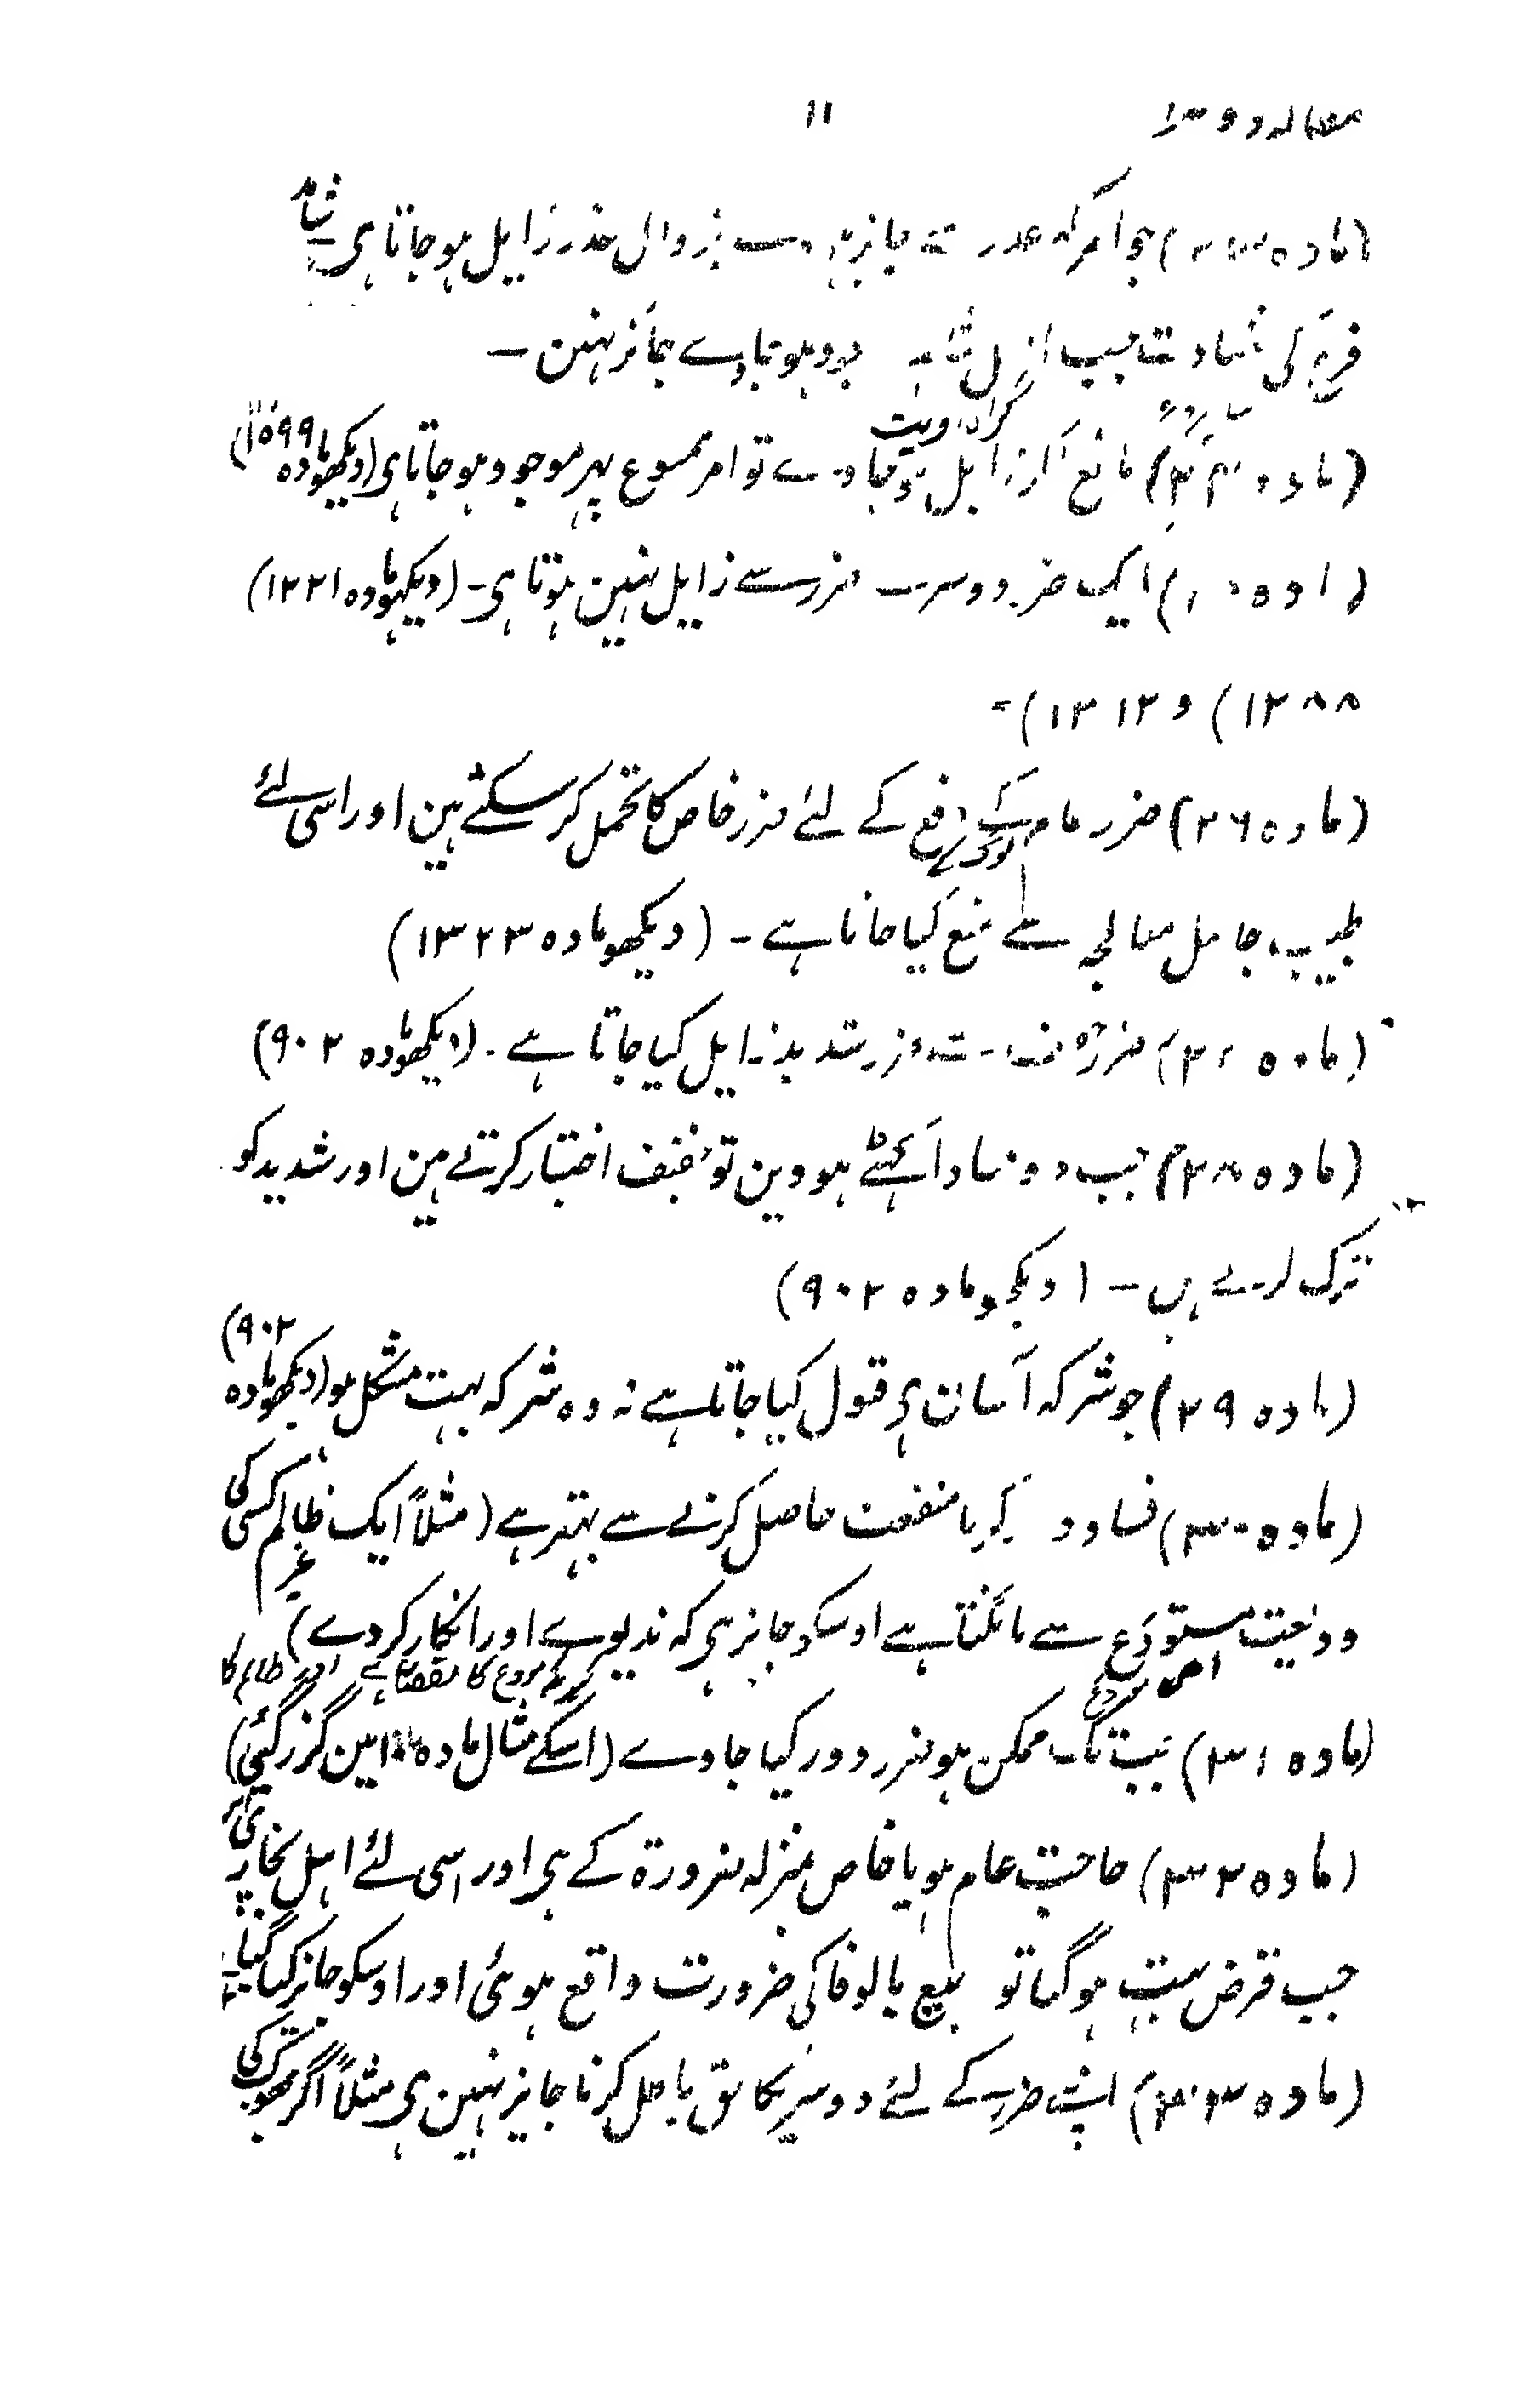 مقالہ دوسرا ۱۱
(مادہ ۲۳) جو امر کہ عذر سے جائز ہو وے بزوال عذر زایل ہو جاتا ہی شاہد
فرع کی شہادت جب اصل شاہد موجود ہو جاوے جائز نہین –
(مادہ ۲۴) مانع اگر زایل ہو جاوے تو امر ممنوع پہر موجود ہو جاتا ہی (دیکھو مادہ ۱۵۹۹)
(مادہ ۲۵) ایک ضرر دوسرے ضرر سے زایل نہین ہوتا ہی – (دیکہو مادہ ۱۲۲۱)
۱۲۸۸) و ۱۳۱۲) –
(مادہ ۲۶) ضرر عام کے دفع کے لئے ضرر خاص کا تحمل کر سکتے ہین اور اسی لئے
طبیب جاہل معالجہ سے منع کیا جاتا ہے – (دیکھو مادہ ۱۳۲۳)
(مادہ ۲۷) ضرر خفیف سے ضرر شدید زایل کیا جاتا ہے – (دیکھو مادہ ۹۰۲)
(مادہ ۲۸) جب دو فساد اکہٹے ہووین تو خفیف اختیار کرتے ہین اور شدید کو
ترک کرتے ہیں – (دیکھو مادہ ۹۰۲)
(مادہ ۲۹) جو شر کہ آسان ہی قبول کیا جاتا ہے نہ وہ شر کہ بہت مشکل ہو (دیکھو مادہ ۹۰۲)
(مادہ ۳۰) فساد دور کرنا منفعت حاصل کرنے سے بہتر ہے (مثلاً ایک ظالم کسی کی
ودیعت مستودع سے مانگتا ہے اوسکو جایز ہی کہ ندیوے اور انکار کر دے)
کیونکہ مودع کا نقصان ہے اور ظالم کا
(مادہ ۳۱) جب تک ممکن ہو ضرر دور کیا جاوے (اسکے مثال مادہ میں گزر گئی)
(مادہ ۳۲) حاجت عام ہو یا خاص بمنزلہ ضرورۃ کے ہی اور اسی لئے اہل بخارا پر
جب قرض بہت ہو گیا تو بیع بالوفا کی ضرورت واقع ہوئی اور اوسکو جائز کیا گیا –
(مادہ ۳۳) اپنے ضرر کے لئے دوسریکا حق باطل کرنا جایز نہین ہی مثلاً اگر بھوک کی